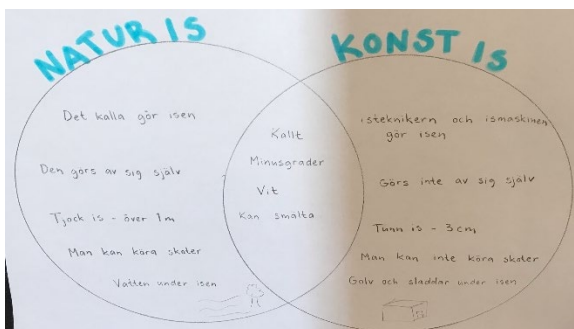 NATUR IS
KONST IS
Det kalla gör isen
Den görs av sig själv
Tjock is - över 1m
Man kan köra skoter
Vatten under isen
Kallt
Minusgrader
Vit
Kan smälta
isteknikern och ismaskinen
gör isen
Görs inte av sig själv
Tunn is - 3cm
Man kan inte köra skoter
Golv och sladdar under isen